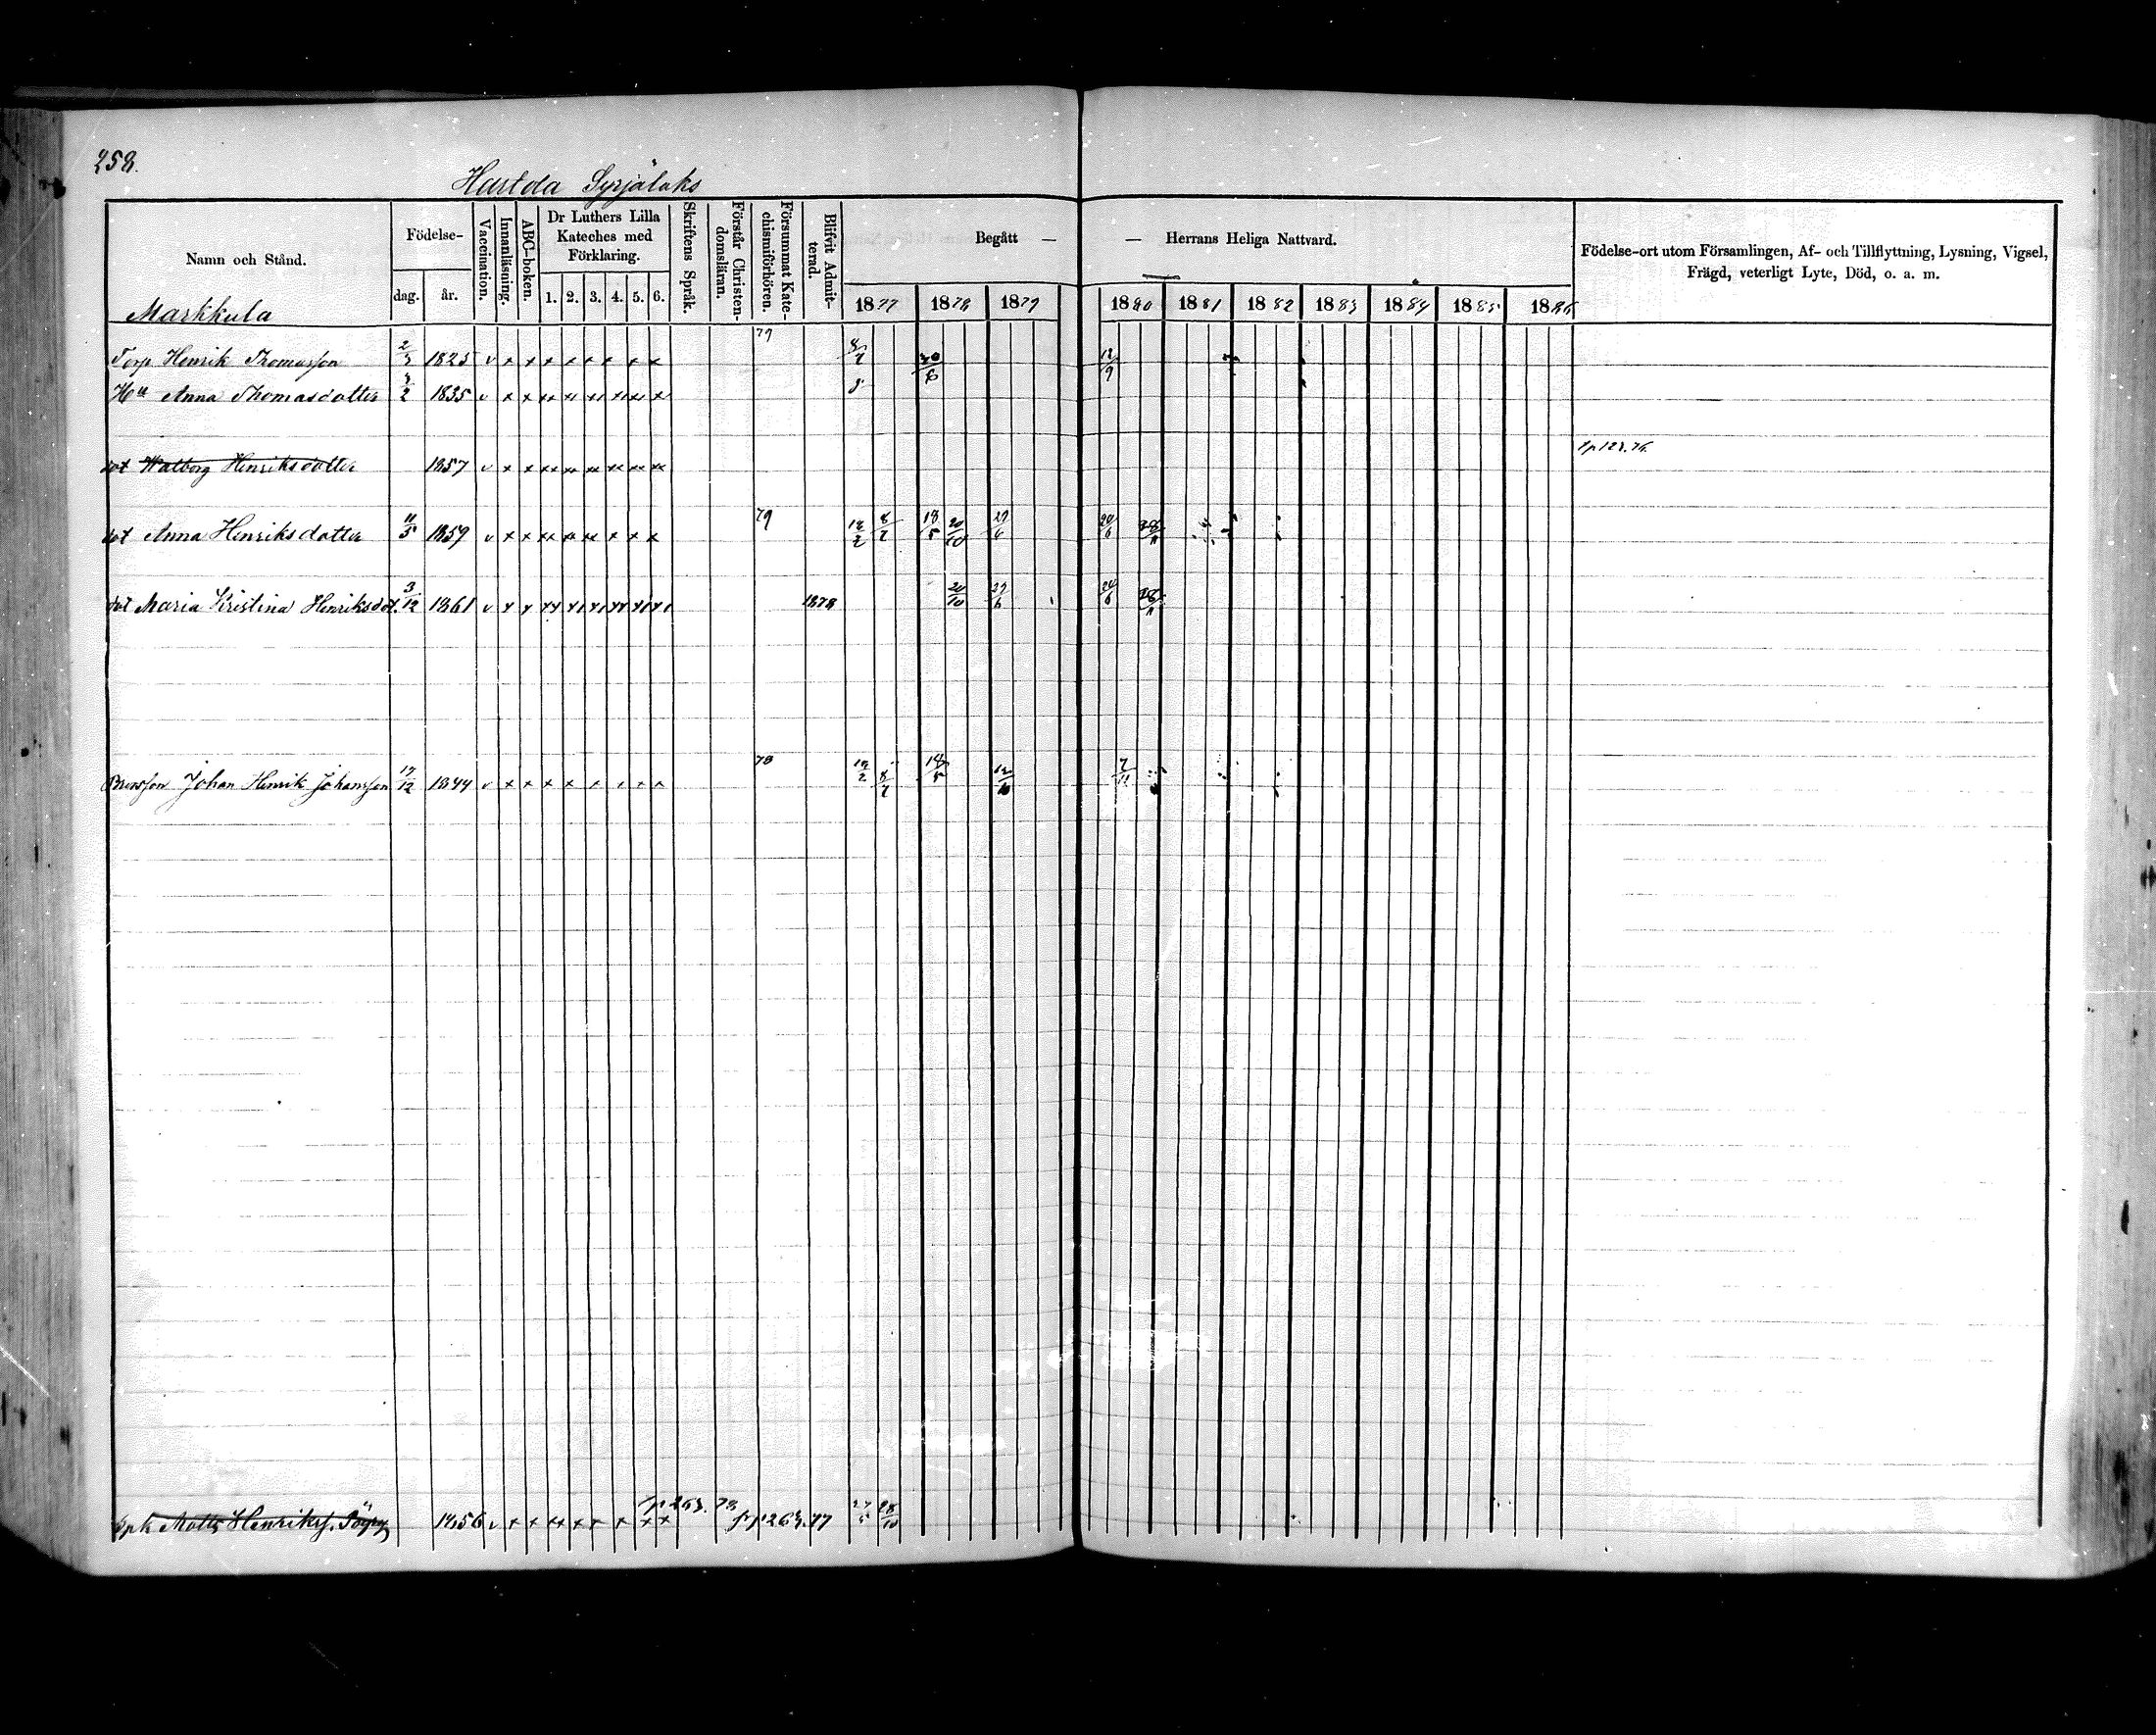 258.
Hartola Syrjälaks
Namn och Stånd.
Födelse-
dag. år.
Vaccination.
Innanläsning.
ABC-boken.
Dr Luthers Lilla
Kateches med
Förklaring.
1. 2. 3. 4. 5. 6.
Skriftens Språk.
Förstår Christen-
domsläran.
Försummat Kate-
chismiförhören.
Blifvit Admit-
terad.
Begått —
— Herrans Heliga Nattvard.
1877 1878 1879 1880 1881 1882 1883 1884 1885 1886
Födelse-ort utom Församlingen, Af- och Tillflyttning, Lysning, Vigsel,
Frägd, veterligt Lyte, Död, o. a. m.
Markkula
Torp Henrik Thomasson 2/3 1825 v x x x x x x x x 79 8/7 12/9
Hu Anna Thomasdotter 1835 v x x
dot Walborg Henriksdotter 1857 v x x
dot Anna Henriksdotter 11/5 1859 v x x 79 18/2 8/7 18/5 20/10 29/6 20/6
dot Maria Kristina Henriksdot. 3/12 1861 v x x 1878 20/10 29/6 20/6
Brorson Johan Henrik Johansson 17/12 1844 v x x x x x x x x 78 18/2 8/7 18/5 12/10 7/11
Matts Henrikss. 1856 v x x p 263. 78 fr p 263. 77 28/10